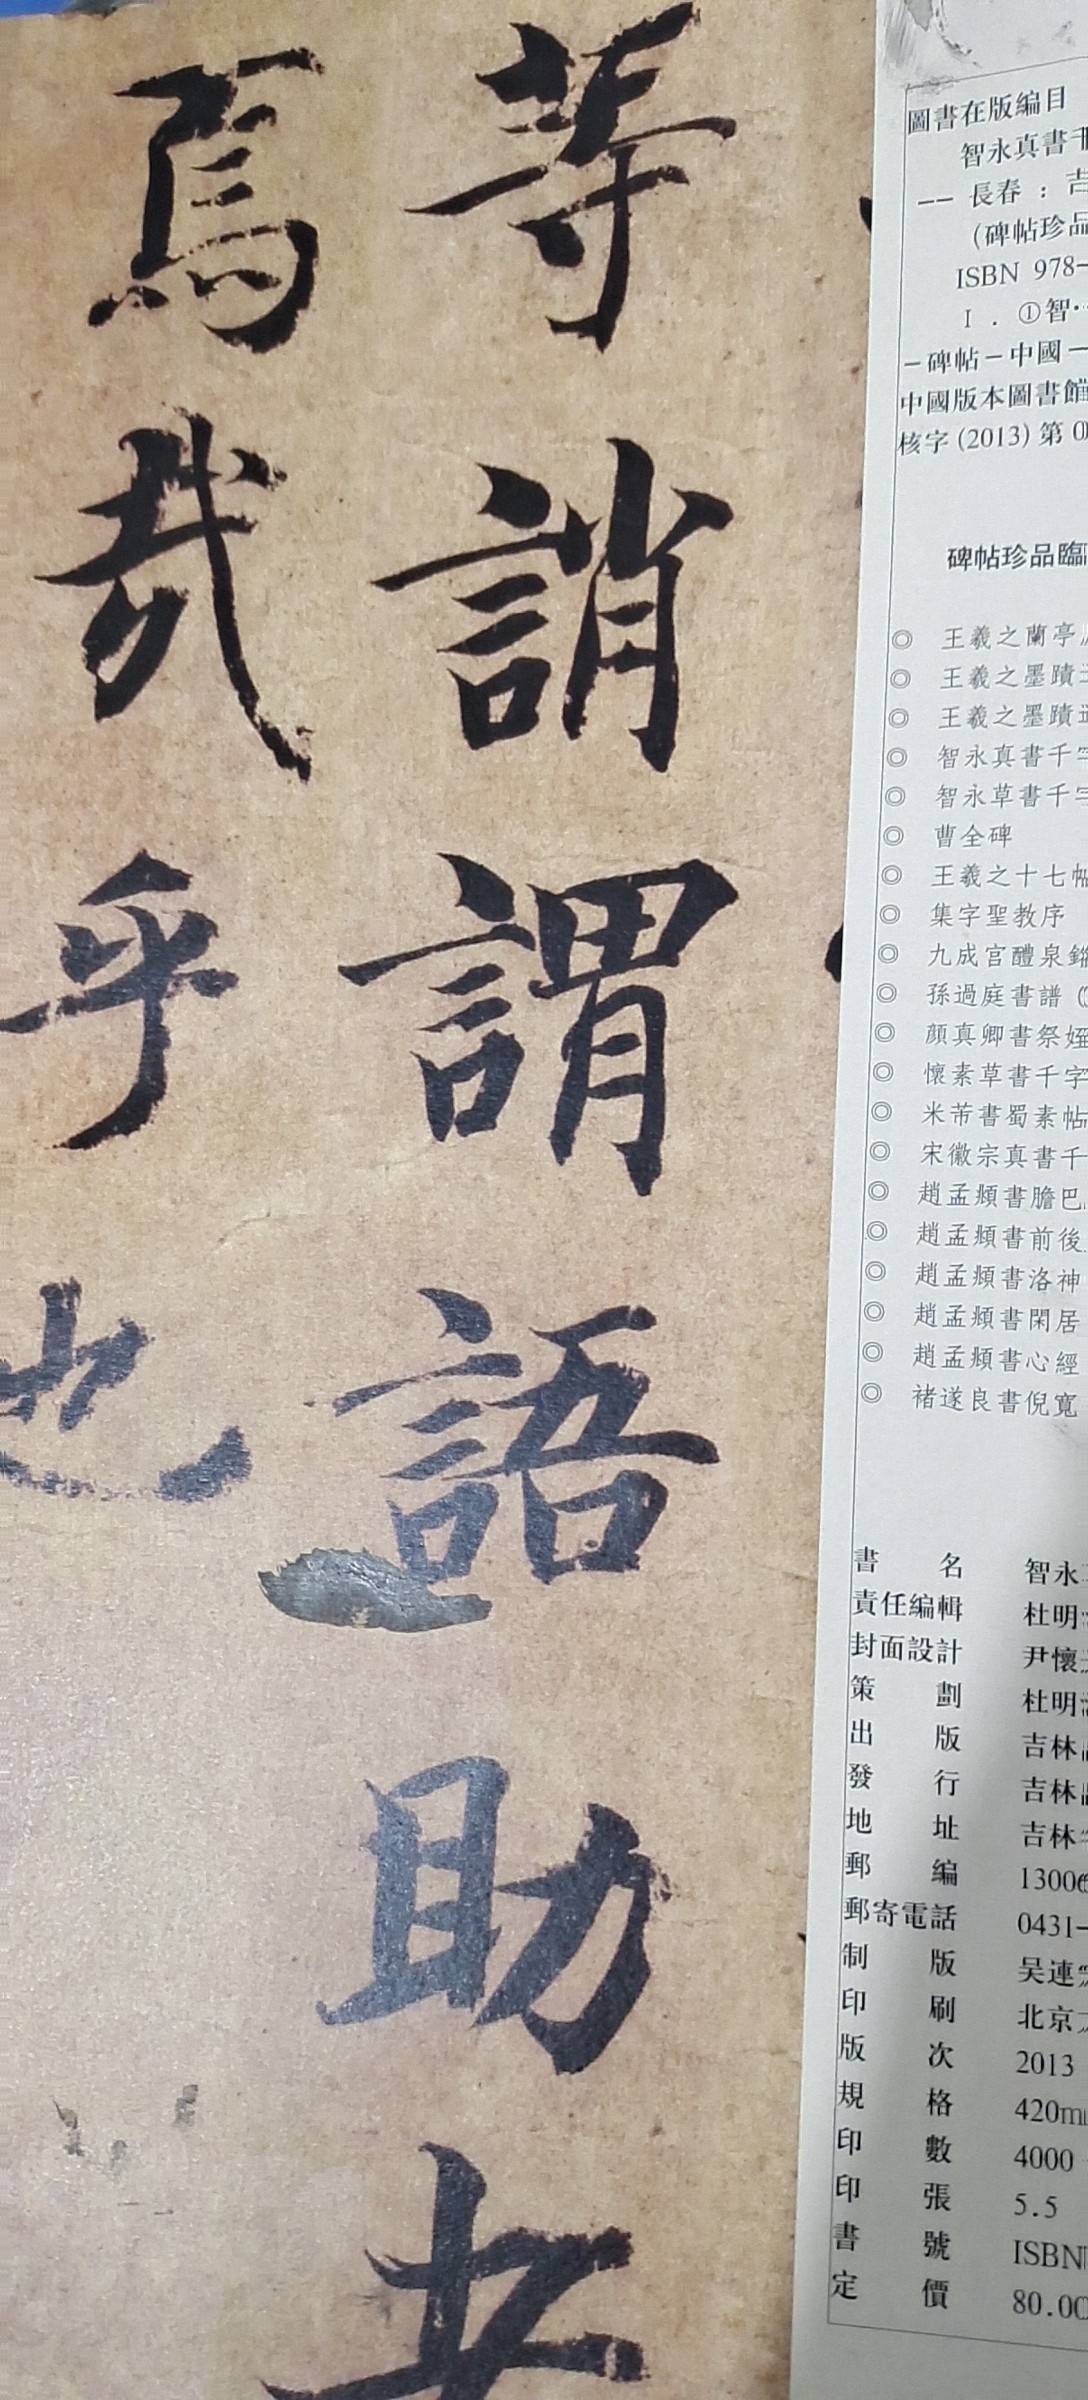 等誚謂語助者
焉哉乎也
圖書在版編目
智永真書千
—— 長春 : 吉
(碑帖珍品
ISBN 978-
Ⅰ . ①智…
－碑帖－中國－
中國版本圖書館
核字 (2013) 第 0
碑帖珍品臨
◎ 王羲之蘭亭
◎ 王羲之墨蹟
◎ 王羲之墨蹟
◎ 智永真書千字
◎ 智永草書千字
◎ 曹全碑
◎ 王羲之十七帖
◎ 集字聖教序
◎ 九成宮醴泉銘
◎ 孫過庭書譜
◎ 顏真卿書祭姪
◎ 懷素草書千字
◎ 米芾書蜀素帖
◎ 宋徽宗真書千
◎ 趙孟頫書膽巴
◎ 趙孟頫書前後
◎ 趙孟頫書洛神
◎ 趙孟頫書閑居
◎ 趙孟頫書心經
◎ 褚遂良書倪寬
書 名 智永
責任編輯 杜明
封面設計 尹懷
策 劃 杜明
出 版 吉林
發 行 吉林
地 址 吉林
郵 編 1300
郵寄電話 0431-
制 版 吴連
印 刷 北京
版 次 2013
規 格 420m
印 數 4000
印 張 5.5
書 號 ISBN
定 價 80.00